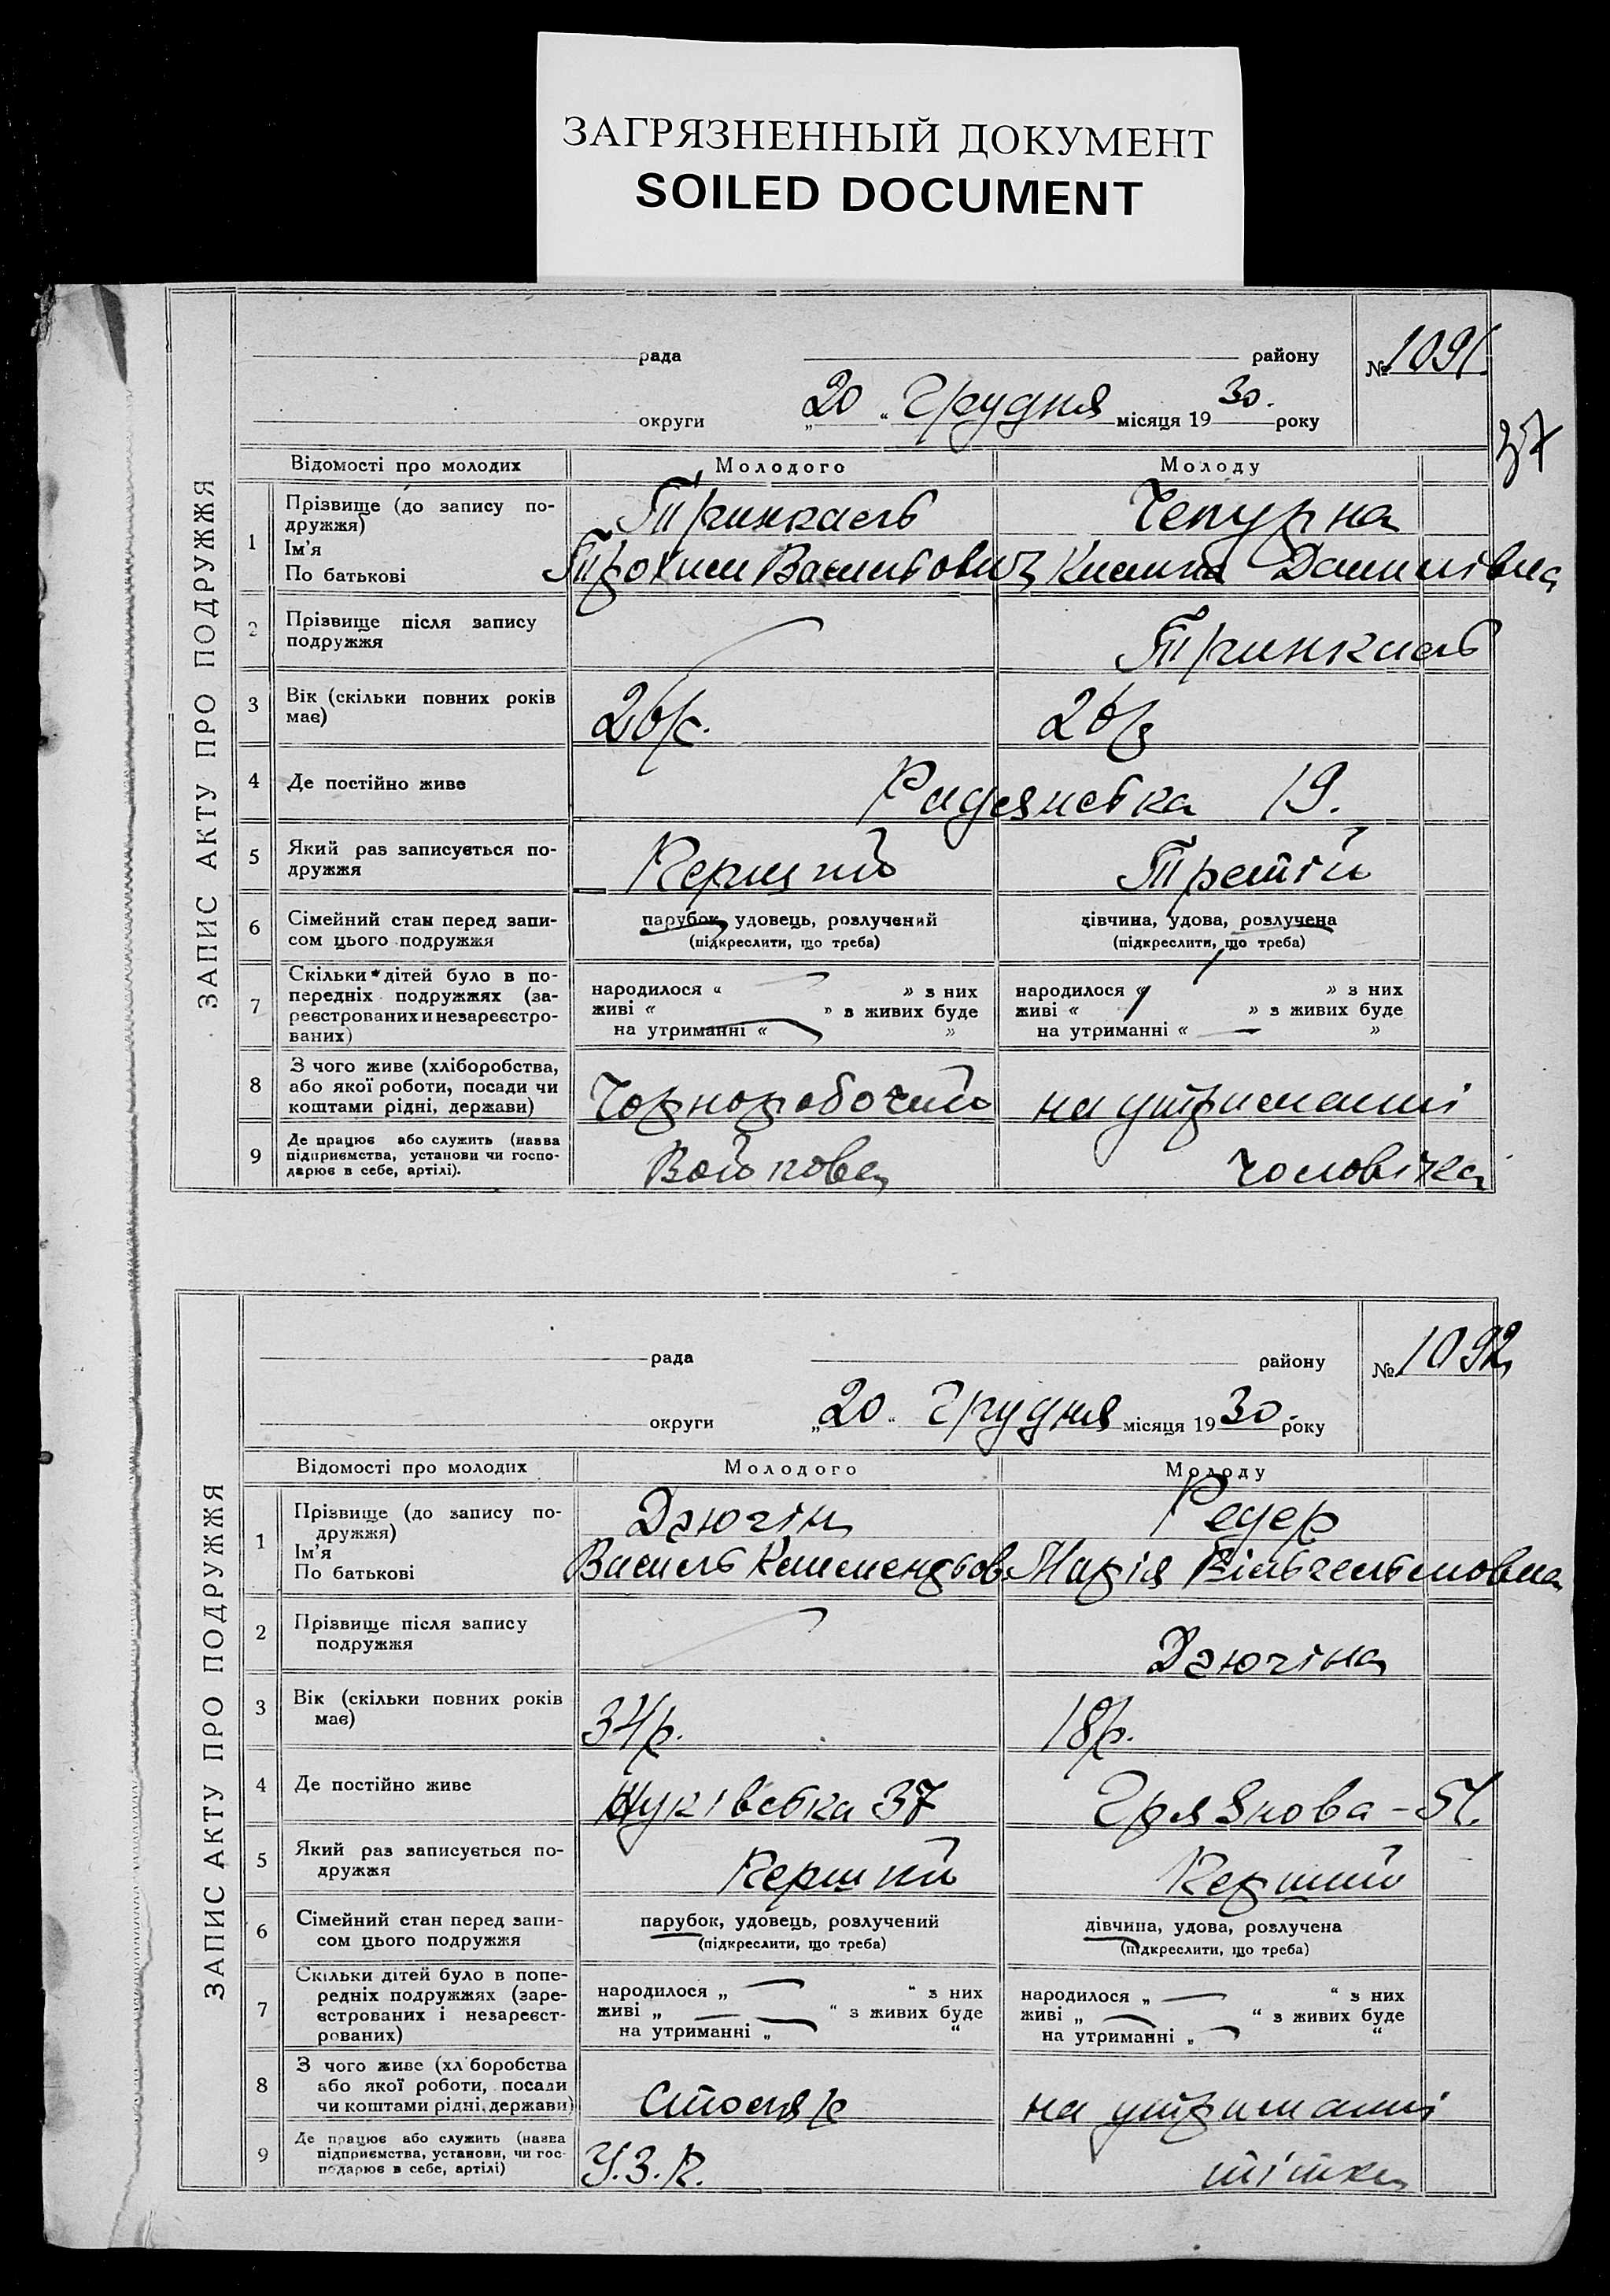 ЗАГРЯЗНЕННЫЙ ДОКУМЕНТ
SOILED DOCUMENT
ЗАПИС АКТУ ПРО ПОДРУЖЖЯ
рада району № 1091.
округи „20“ Грудня місяця 1930. року
37
Відомості про молодих Молодого Молоду
1 Прізвище (до запису по-
дружжя) Чепурна
Ім'я
По батькові Трохим Васильович Данилівна
2 Прізвище після запису
подружжя
3 Вік (скільки повних років
має) 26р. 26р
4 Де постійно живе Радянська 19.
5 Який раз записується по-
дружжя Перший Третій
6 Сімейний стан перед запи-
сом цього подружжя
парубок, удовець, розлучений дівчина, удова, розлучена
(підкреслити, що треба) (підкреслити, що треба)
7 Скільки дітей було в по-
передніх подружжях (за-
реєстрованих и незареєстро-
ваних)
народилося « » з них народилося « » з них
живі « » з живих буде живі « » з живих буде
на утриманні « » на утриманні « »
8 З чого живе (хліборобства,
або якої роботи, посади чи
коштами рідні, держави) Чорноробочий на утриманні
9 Де працює або служить (назва
підприємства, установи чи госпо-
дарює в себе, артілі). чоловіка
ЗАПИС АКТУ ПРО ПОДРУЖЖЯ
рада району № 1092
округи „20“ Грудня місяця 1930. року
Відомості про молодих Молодого Молоду
1 Прізвище (до запису по-
дружжя) Дзюгін Редер
Ім'я
По батькові Василь Климентьов. Марія Вільгельмовна
2 Прізвище після запису
подружжя Дзюгіна
3 Вік (скільки повних років
має) 34р. 18р.
4 Де постійно живе 37
5 Який раз записується по-
дружжя Перший Перший
6 Сімейний стан перед запи-
сом цього подружжя
парубок, удовець, розлучений дівчина, удова, розлучена
(підкреслити, що треба) (підкреслити, що треба)
7 Скільки дітей було в попе-
редніх подружжях (заре-
єстрованих і незареєст-
рованих)
народилося „ “ з них народилося „ “ з них
живі „ “ з живих буде живі „ “ з живих буде
на утриманні „ “ на утриманні „ “
8 З чого живе (хл боробства
або якої роботи, посади
чи коштами рідні, держави) Столяр на утриманні
9 Де працює або служить (назва
підприємства, установи, чи гос-
подарює в себе, артілі) У.З.К. тітки